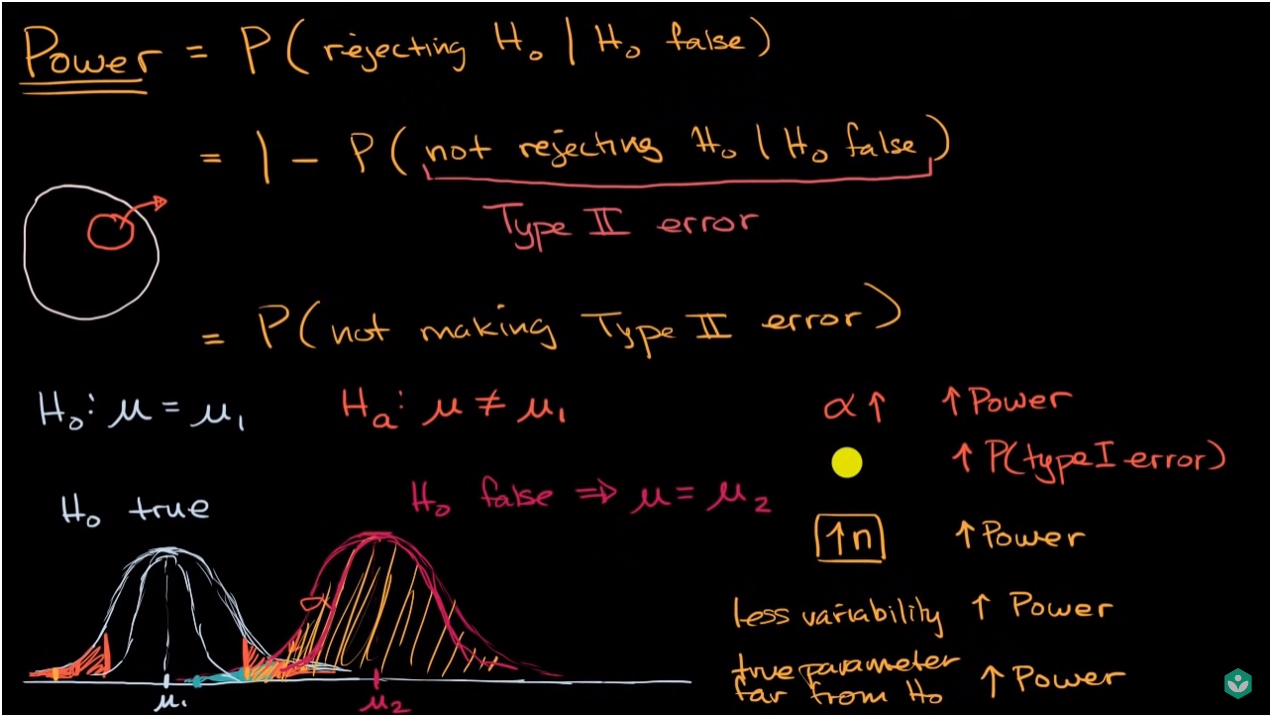 Power = P(rejecting H₀ | H₀ false)
= 1 - P(not rejecting H₀ | H₀ false)
Type II error
= P(not making Type II error)
H₀: μ = μ₁
Hₐ: μ ≠ μ₁
α↑ ↑Power
↑P(type I error)
H₀ true
H₀ false ⇒ μ = μ₂
↑n ↑Power
α
less variability ↑ Power
true parameter
far from H₀ ↑ Power
μ₁
μ₂